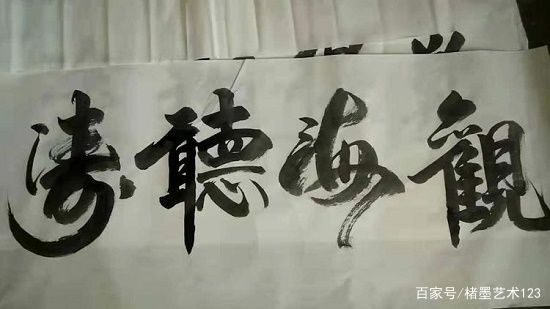 觀海聽濤
百家号/楮墨艺术123